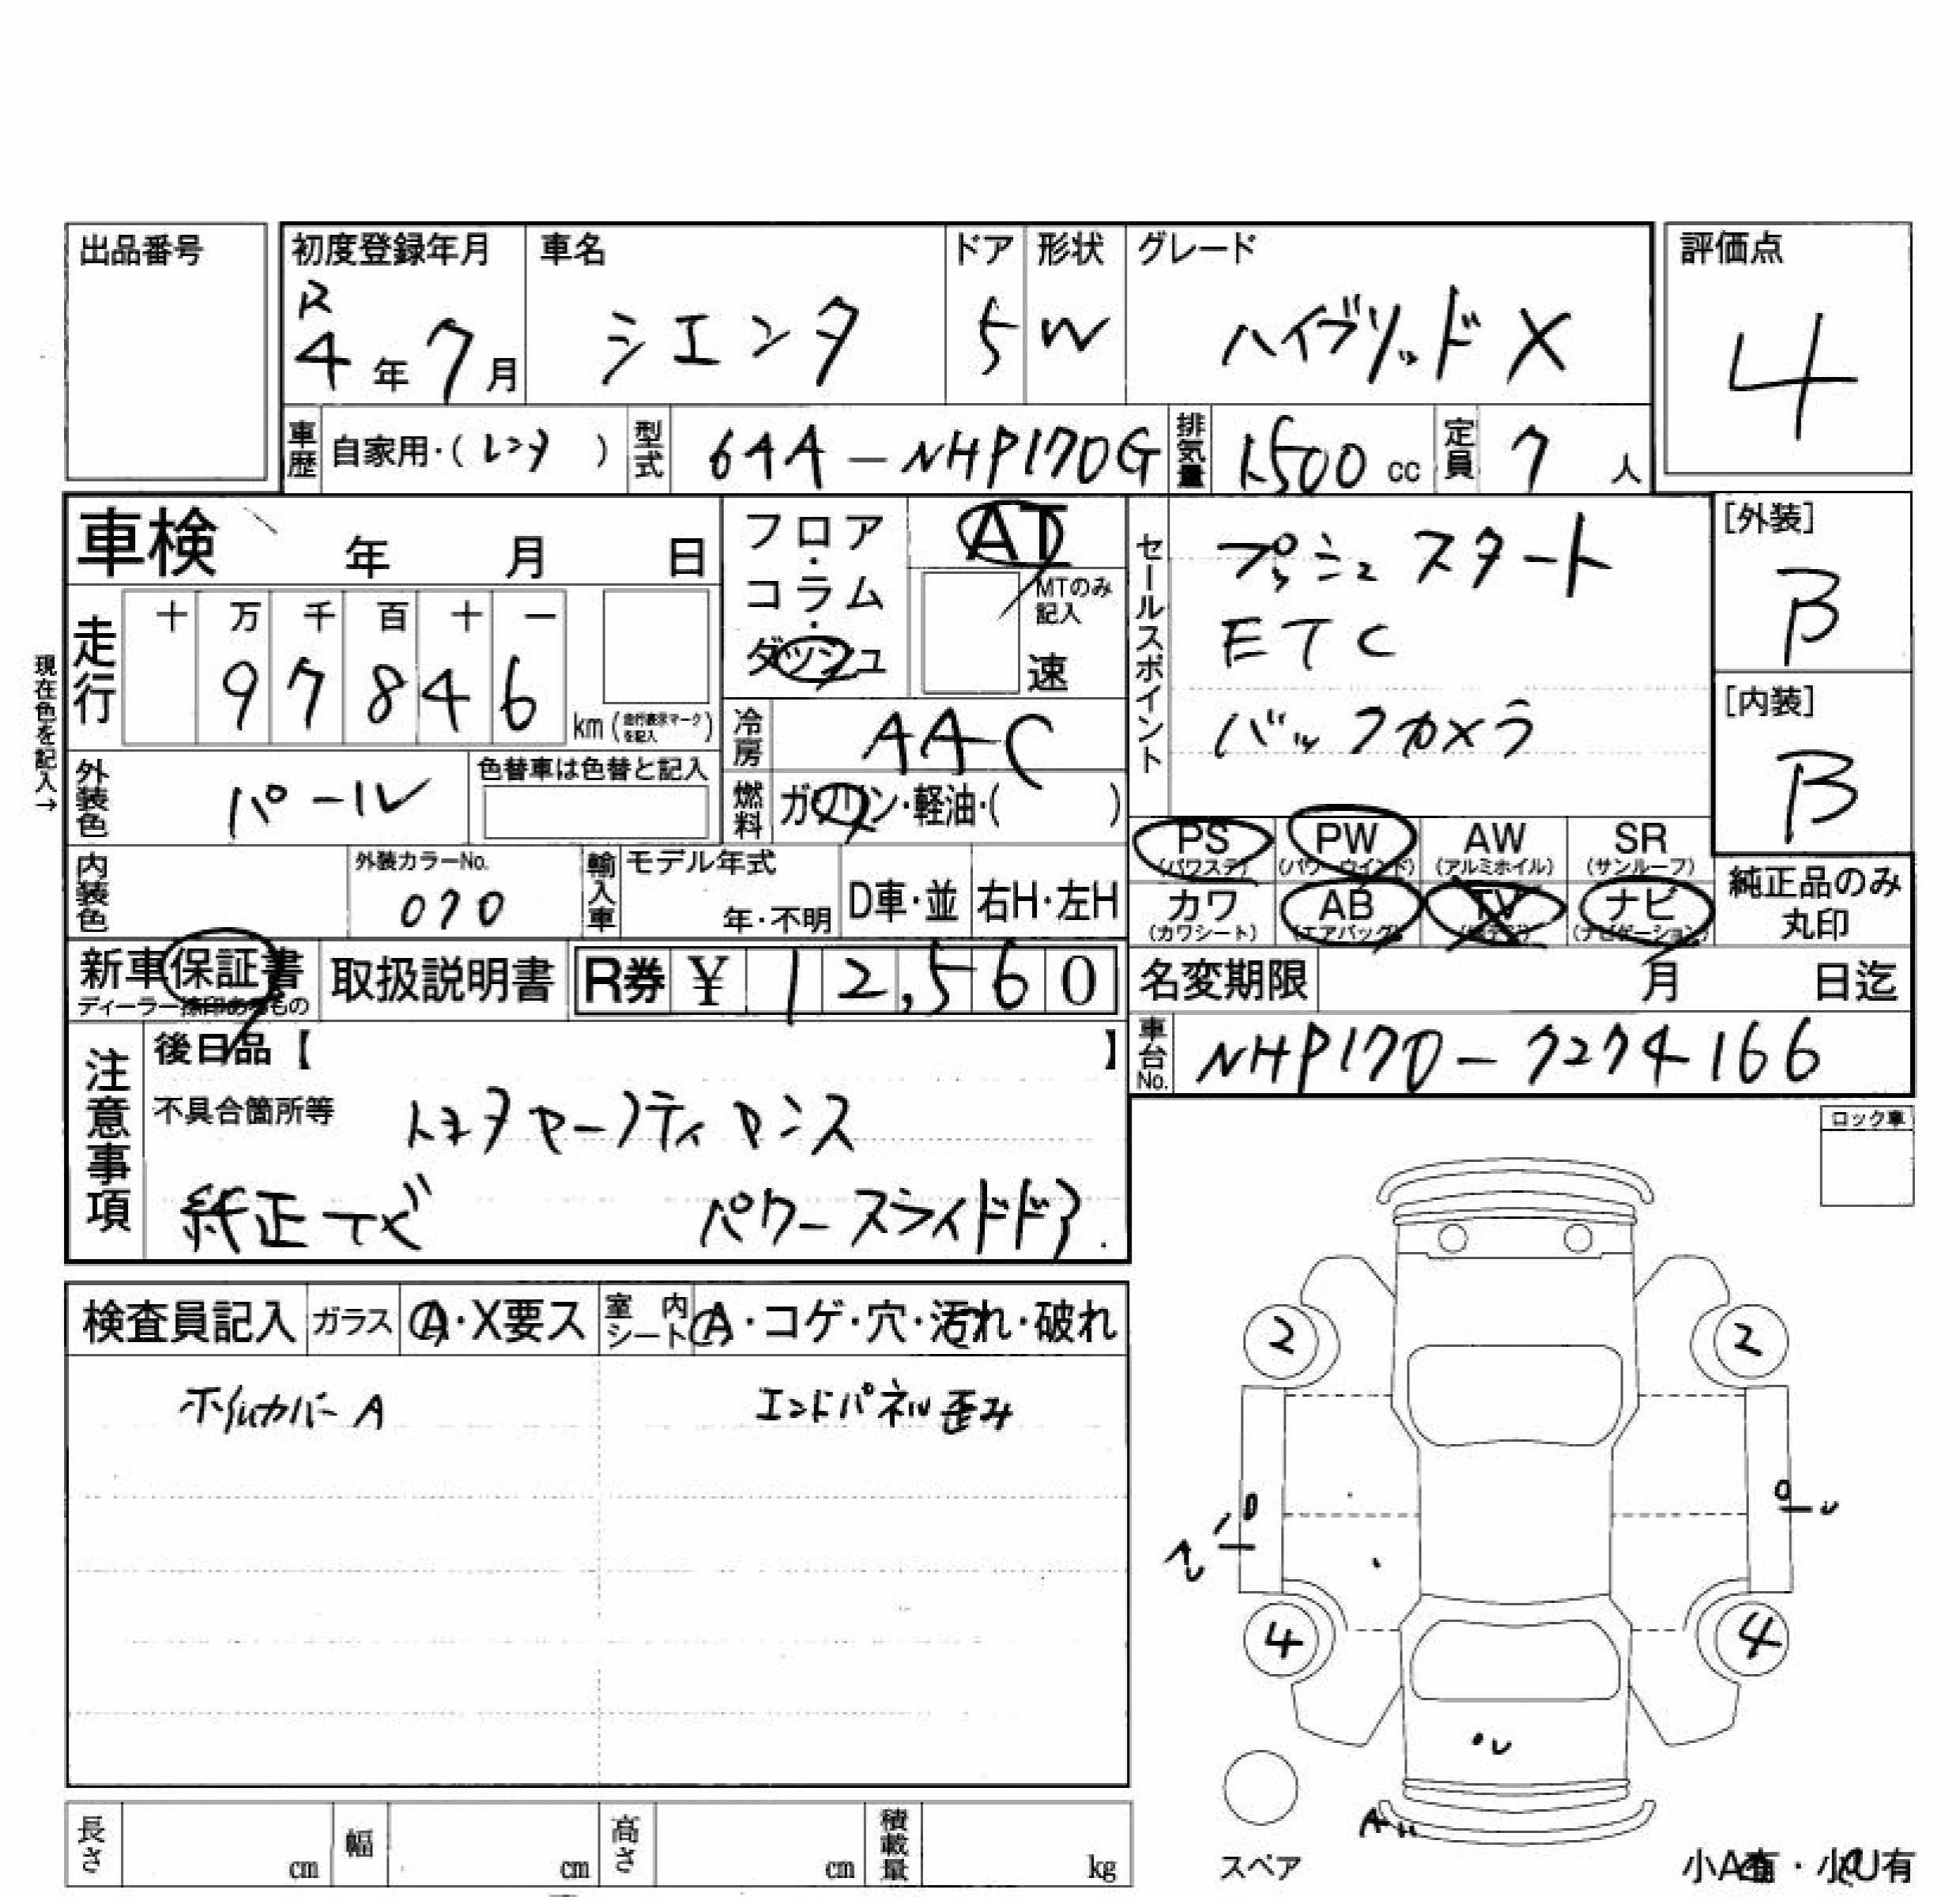 出品番号
初度登録年月 車名 ドア 形状 グレード 評価点
R
4年7月 シエンタ 5 W ハイブリッド X 4
車歴 自家用・(レンタ) 型式 6AA-NHP170G 排気量 1500 cc 定員 7 人
車検 年 月 日
フロア・コラム・ダッシュ AT
MTのみ記入
速
セールスポイント
プッシュスタート
ETC
バックカメラ
[外装]
B
[内装]
B
現在色を記入→
走行 十 万 千 百 十 一
97846 km (走行表示マークを記入)
冷房 AAC
外装色 パール 色替車は色替と記入
燃料 ガソリン・軽油・( )
PS (パワステ) PW (パワーウインド) AW (アルミホイル) SR (サンルーフ)
カワ (カワシート) AB (エアバッグ) TV ナビ (ナビゲーション)
純正品のみ丸印
内装色 外装カラーNo. 070
輸入車 モデル年式 年・不明 D車・並 右H・左H
新車保証書 取扱説明書 R券 ¥ 12,560
名変期限 月 日迄
車台No. NHP170-7274166
注意事項
後日品【 】
不具合箇所等 トヨタセーフティセンス
純正ナビ パワースライドドア
ロック車
検査員記入 ガラス A・X要ス 室内シート A・コゲ・穴・汚れ・破れ
ホイルカバーA エンドパネル歪み
2 2
U
4 4
U
スペア
小A有・小U有
長さ cm 幅 cm 高さ cm 積載量 kg